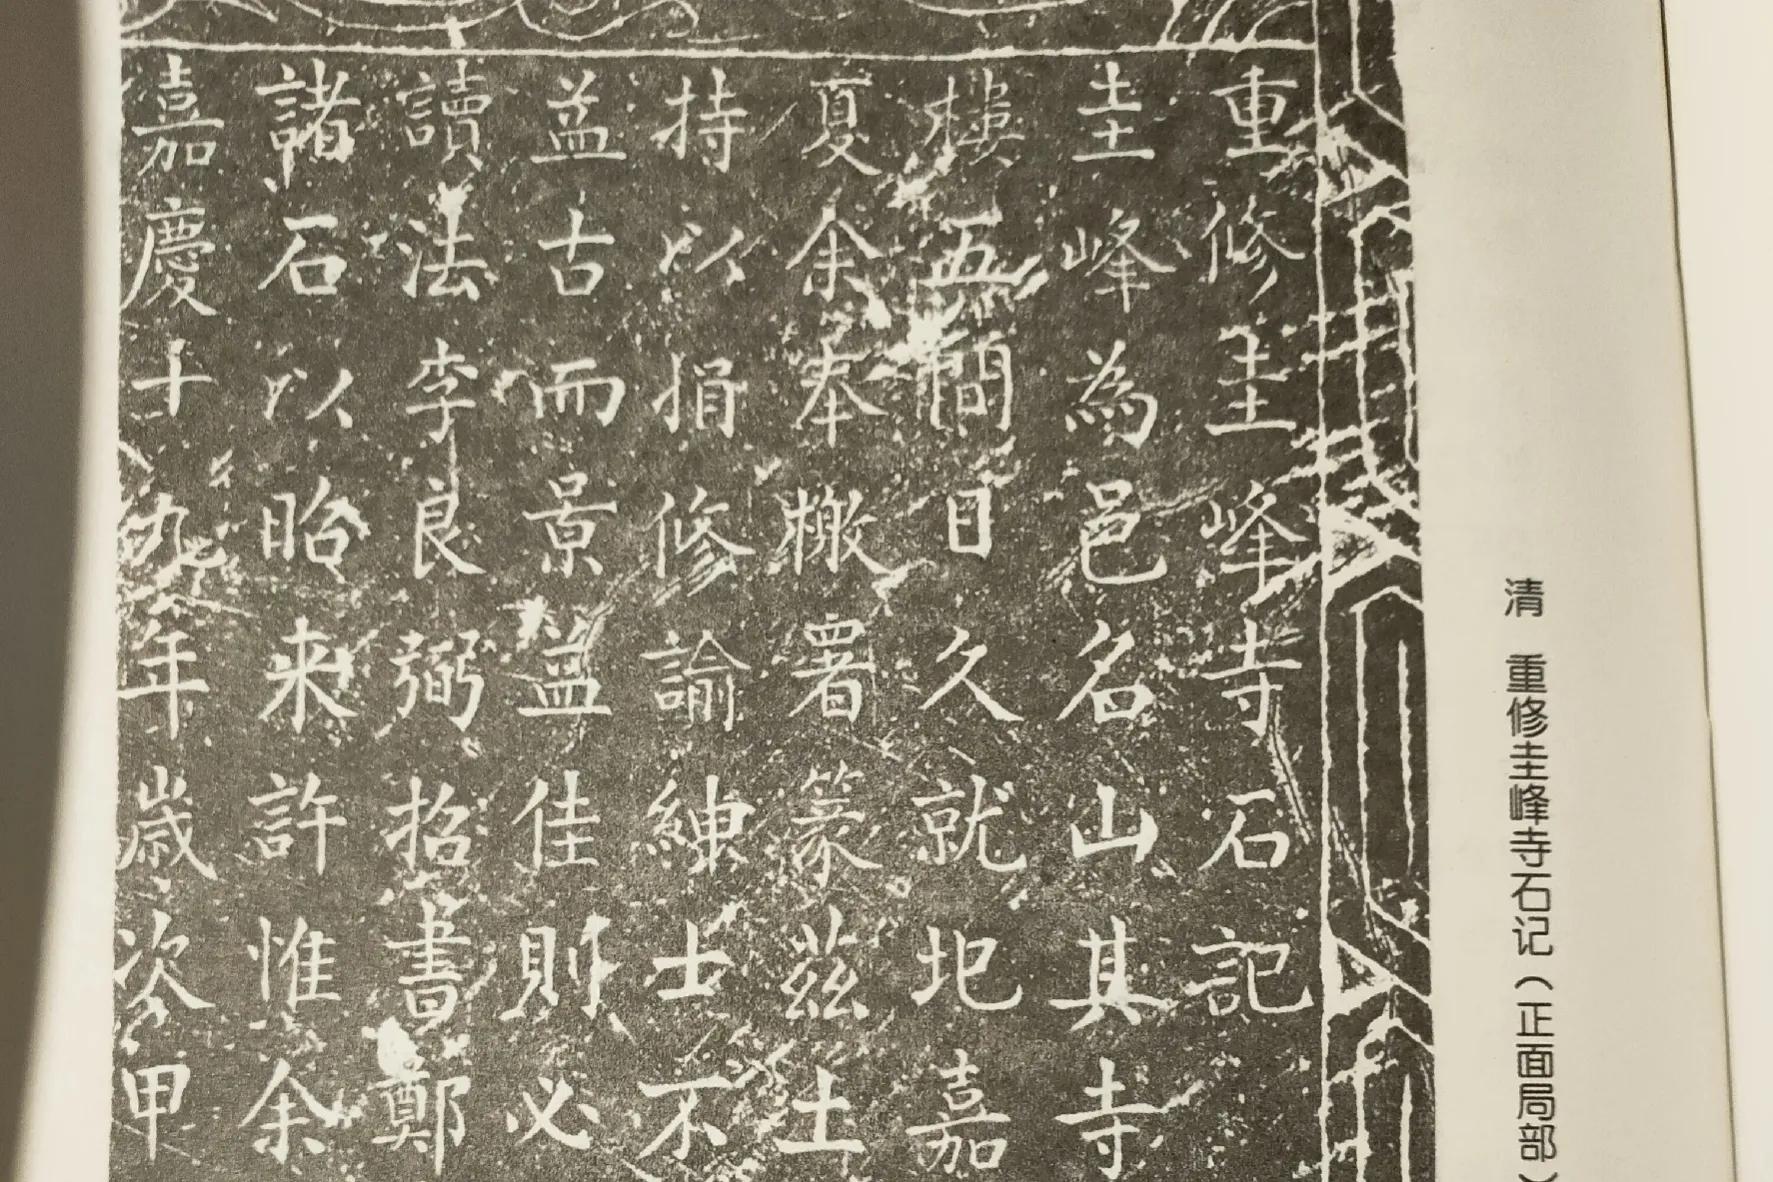 清 重修圭峰寺石记(正面局部)
重修圭峰寺石記
圭峰為邑名山其寺
樓五間日久就圯嘉
夏余奉檄署篆茲土
持以捐修諭紳士不
益古而景益佳則必
讀法李良弼招書鄭
諸石以昭来許惟余
嘉慶十九年歲次甲